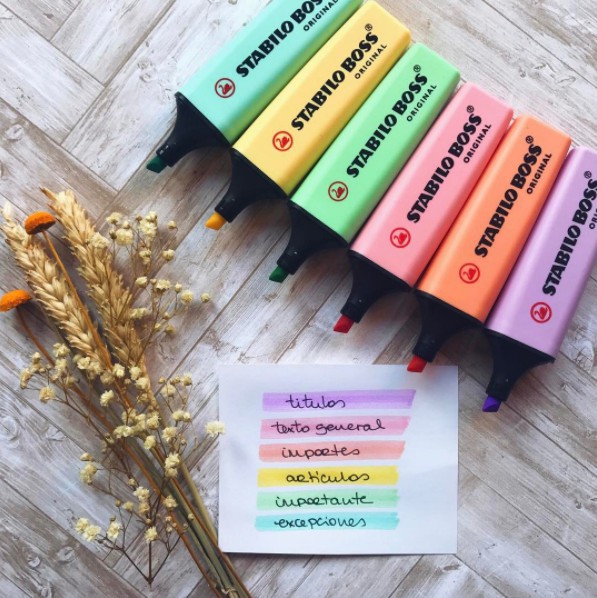 STABILO BOSS ORIGINAL
STABILO BOSS® ORIGINAL
STABILO BOSS® ORIGINAL
STABILO BOSS® ORIGINAL
STABILO BOSS® ORIGINAL
STABILO BOSS®
titulos
texto general
importes
articulos
importante
excepciones